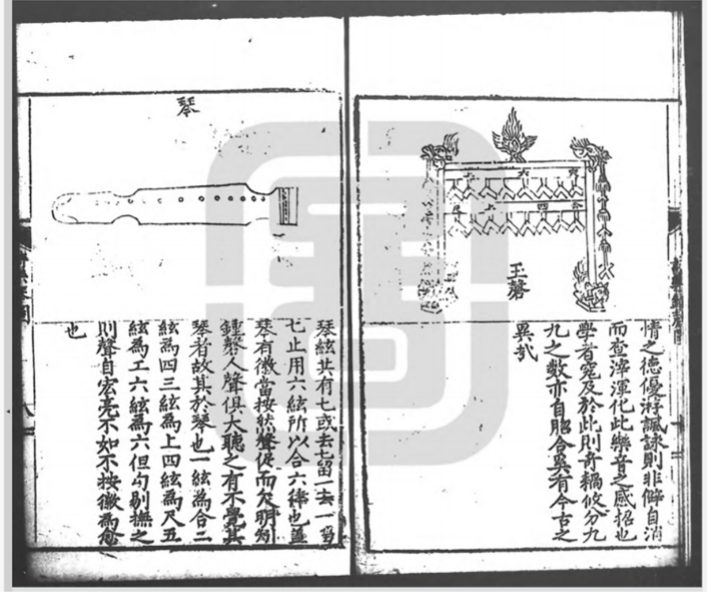 玉磬
情之德優游諷詠則非僻自消
而查滓渾化此樂音之感招也
學者究及於此則奇耦攸分九
九之數亦自脗合奚有今古之
異哉
琴
琴絃共有七或去七留一去一留
七止用六絃所以合六律也蓋
琴有徽當按然聲促而欠明為
鍾磬人聲俱大聽之有不覺其
琴者故其於琴也一絃為合二
絃為四三絃為上四絃為尺五
絃為工六絃為六但勾剔撫之
則聲自宏亮不如不按徽為愈
也